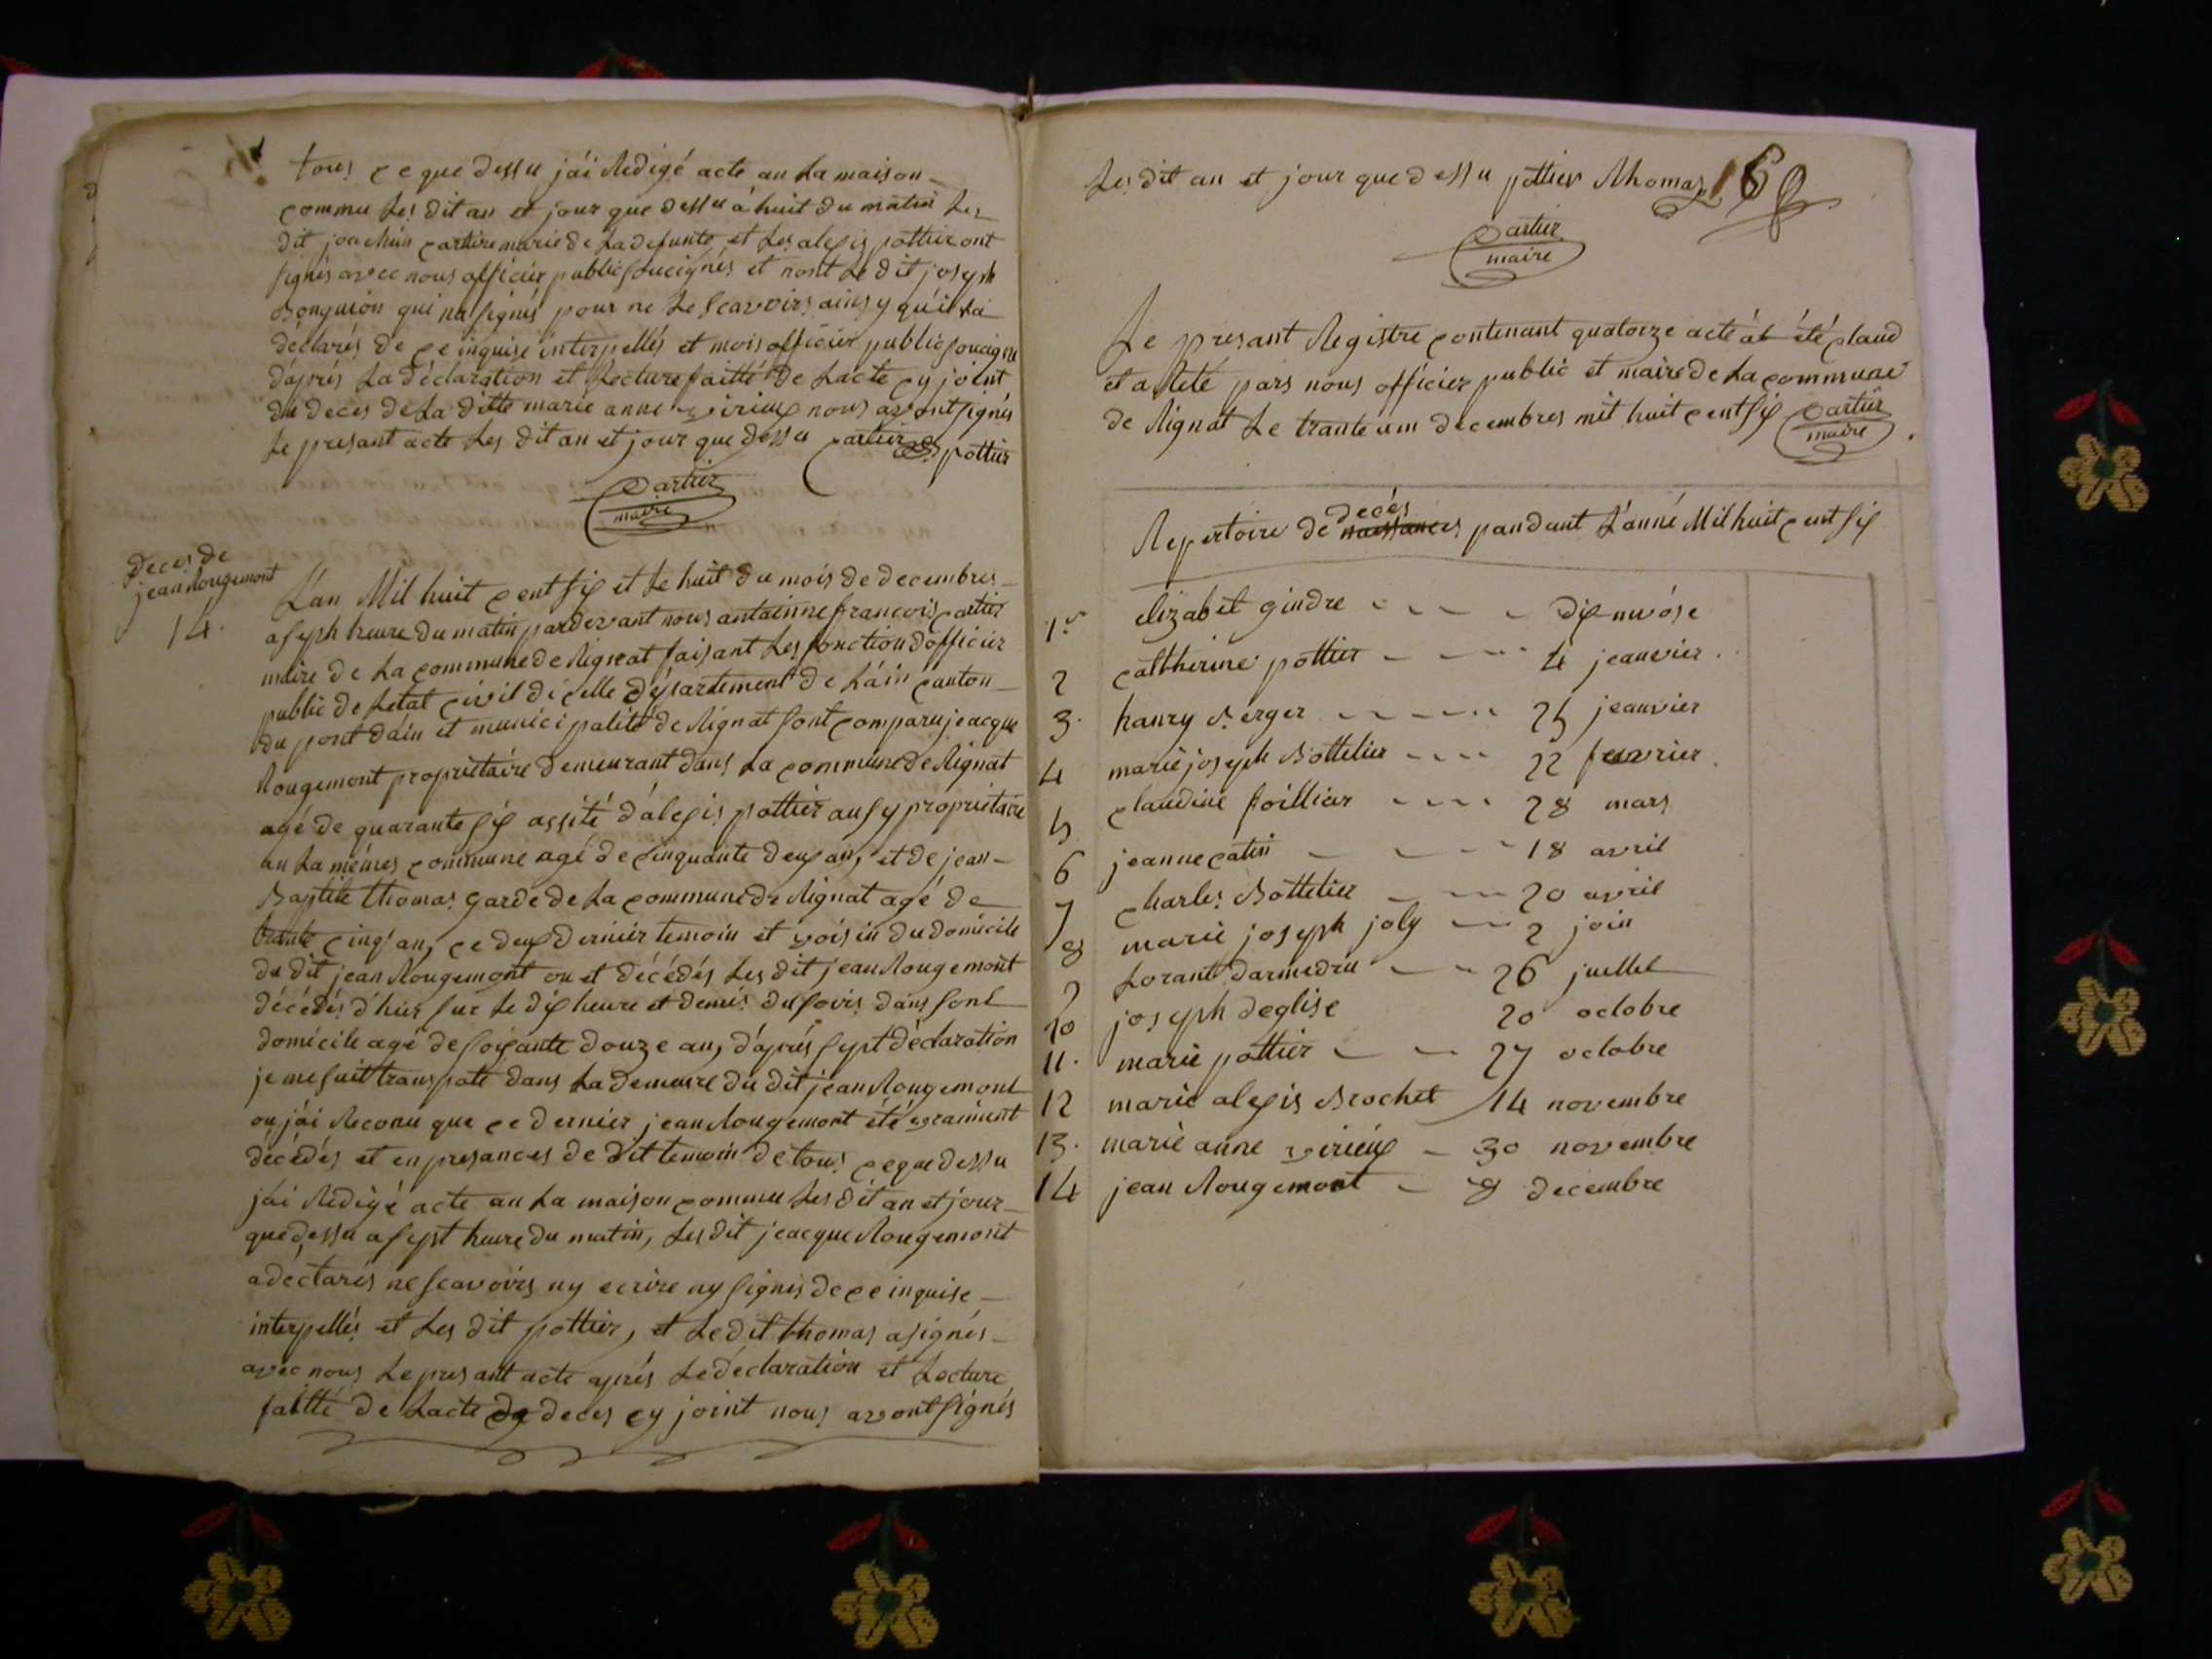 tous ce que dessu jái Redigé acte au La maison
commu Les dit an et jour que dessu a huit du matin Les
dit joachim cartire marie de La defunte et Les alexis pottier ont
signés avec nous officier public soucignés et nont Le dit joseph
Bonguion qui na signés pour ne Le Scavoirs ainsy quil La
déclarés de ce inquise interpellés et mois officier public soucigne
daprés La déclaration et Lecture faitté de Lacte cy joint
du deces de La ditte marie anne virieux nous avont signés
Le presant acte Les dit an et jour que dessu Cartier pottier
Cartier
maire
Deces de
jean Rougemont
14.
Lan Mil huit cent six et Le huit du mois de decembres
a seph heure du matin pardevant nous antainne francois Cartier
maire de La commune de Rignat faisant Les fonction dofficier
public de Letat civil dicelle département de Láin canton
du pont dáin et municipalité de Rignat sont comparu jeacque
Rougemont propriétaire demeurant dans La commune de Rignat
agé de quarante six assité dálexis pottier ausy propriétaire
au La mêmes commune agé de cinquante deux ans et de jean
Baptite thomas garde de La commune de Rignat agé de
trante cinq an, ce deux dernier temoin et voisin du domicile
du dit jean Rougemont ou et décédés Les dit jean Rougemont
décédés d'hier sur Le dix heure et demis du soirs dans sont
domicile agé de soixante douze an, dáprés sept déclaration
je me suit transpote dans La demeure du dit jean Rougemont
ou jái Reconu que ce dernier jean Rougemont été vraiment
décédés et en presances de dit temoin de tous ce que dessu
jái Redigé acte au La maison commu Les dit an et jour
que dessu a sept heure du matin, Les dit jeacque Rougemont
a déclarés ne scavoirs ny ecrire ny signés de ce inquise
interpellés et Les dit pottier, et Le dit thomas a signés
avec nous Le presant acte aprés Le déclaration et Lecture
faitté de Lacte de deces cy joint nous avont signés
Les dit an et jour que dessu pottier Thomas 16
Cartier
maire
Le presant Registre contenant quatorze acte át été claud
et a Reté pars nous officier public et maire de La commune
de Rignat Le trante um decembres mit huit cent six Cartier
maire
decés
Repertoire de naissances pandant L'anné Mil huit cent six
1er elizabet gindre dix nivóse
2 catherine pottier 4 jeanvier
3 hanry Berger 25 jeanvier
4 marie joseph Bottelier 22 feuvrier
5 claudine foillier 28 mars
6 jeanne catin 18 avril
7 charles Bottelier 20 avril
8 marie joseph joly 2 join
9 Lorant darmedru 26 juellet
10 joseph deglise 20 octobre
11. marie pottier 27 octobre
12 marie alexis Brochet 14 novembre
13. marie anne virieux 30 novembre
14 jean Rougemont 8 decembre